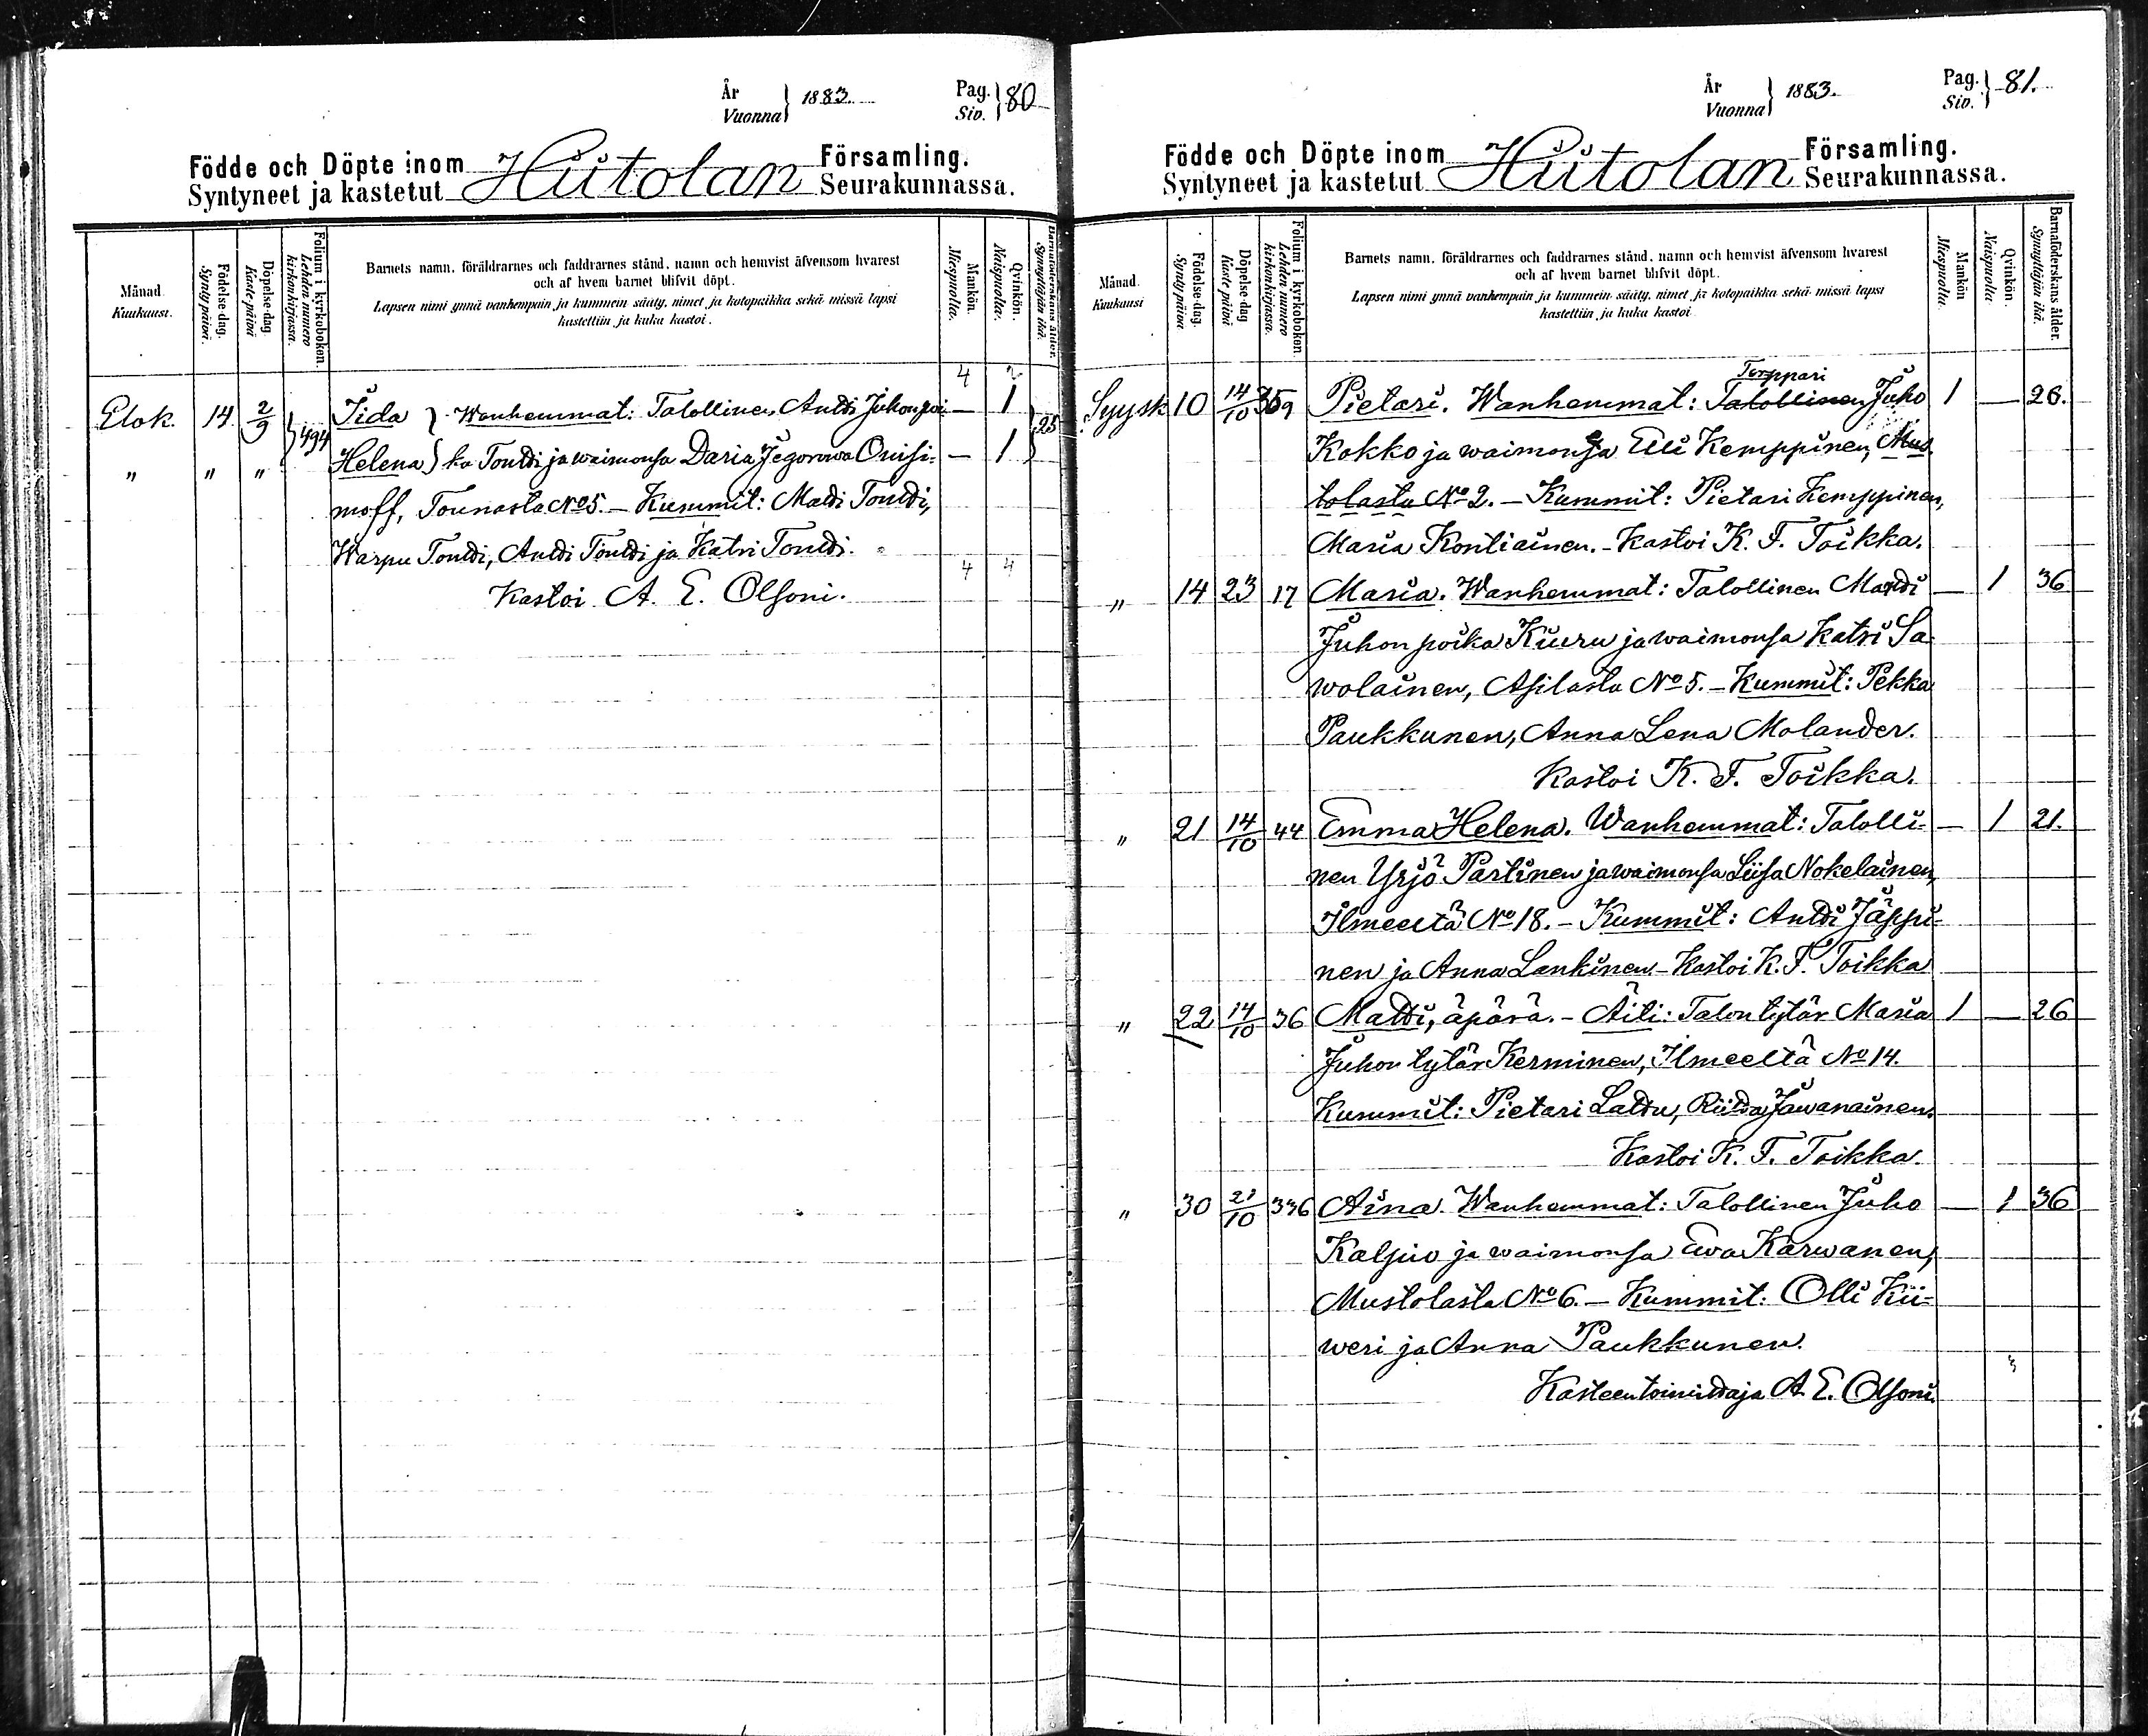 År
Vuonna } 1883. Pag.
Siv. } 80
Födde och Döpte inom Hiitolan Församling.
Syntyneet ja kastetut Seurakunnassa.
Månad.
Kuukausi.
Födelse-dag.
Synty päivä.
Döpelse-dag
Kaste-päivä
Folium i kyrkoboken.
Lehden numero
kirkonkirjassa.
Barnets namn, föräldrarnes och faddrarnes stånd, namn och hemvist äfvensom hvarest
och af hvem barnet blifvit döpt.
Lapsen nimi ynnä vanhempain ja kummein sääty, nimet ja kotopaikka sekä missä lapsi
kastettiin ja kuka kastoi.
Mankön.
Miespuolta.
Qvinkön.
Naispuolta.
Barnaföderskans ålder.
Synnyttäjän ikä.
4 2
Elok. 14 2/9 } 494 Iida } Wanhemmat: Talollinen Antti Juhon poi- — 1 } 25
" " " Helena } ka Tontti ja waimonsa Daria Jegorowa Onisi- — 1
moff, Tounasta No 5. — Kummit: Matti Tontti,
Warpu Tontti, Antti Tontti ja Katri Tontti.
4 4
Kastoi A. E. Olsoni.
År
Vuonna } 1883. Pag.
Siv. } 81.
Födde och Döpte inom Hiitolan Församling.
Syntyneet ja kastetut Seurakunnassa.
Månad.
Kuukausi
Födelse-dag.
Synty päivä
Döpelse-dag
Kaste päivä
Folium i kyrkoboken
Lehden numero
kirkonkirjassa.
Barnets namn, föräldrarnes och faddrarnes stånd, namn och hemvist äfvensom hvarest
och af hvem barnet blifvit döpt.
Lapsen nimi ynnä vanhempain ja kummein sääty, nimet ja kotopaikka sekä missä lapsi
kastettiin ja kuka kastoi
Mankön
Miespuolta.
Qvinkön.
Naispuolta
Barnaföderskans ålder.
Synnyttäjän ikä.
Torppari
Syysk 10 14/10 Pietari. Wanhemmat: Talollinen Juho 1 — 26.
Kokko ja waimonsa Elli Kemppinen, Mus-
tolasta No 2. — Kummit: Pietari Kemppinen,
Maria Kontiainen. - Kastoi K. F. Toikka.
" 14 23 17 Maria. Wanhemmat: Talollinen Matti — 1 36
Juhon poika Kiuru ja waimonsa Katri Sa-
wolainen, Asilasta No 5. — Kummit: Pekka
Paukkunen, Anna Lena Molander.
Kastoi K. F. Toikka.
" 21 14/10 44 Emma Helena. Wanhemmat: Talolli- — 1 21.
nen Yrjö Partinen ja waimonsa Liisa Nokelainen,
Ilmeeltä No 18. — Kummit: Antti Jäppi-
nen ja Anna Lankinen - Kastoi K. F. Toikka
" 22 14/10 36 Matti, äpärä. - Äiti: Talon tytär Maria 1 — 26
Juhon tytär Kerminen, Ilmeeltä No 14.
Kummit: Pietari Lattu, Riitta Jawanainen.
Kastoi K. F. Toikka.
" 30 21/10 336 Aina. Wanhemmat: Talollinen Juho — 1 36
Kaljuo ja waimonsa Ewa Karwanen,
Mustolasta No 6. — Kummit: Olli Kii-
weri ja Anna Paukkunen.
3
Kasteentoimittaja A. E. Olsoni.